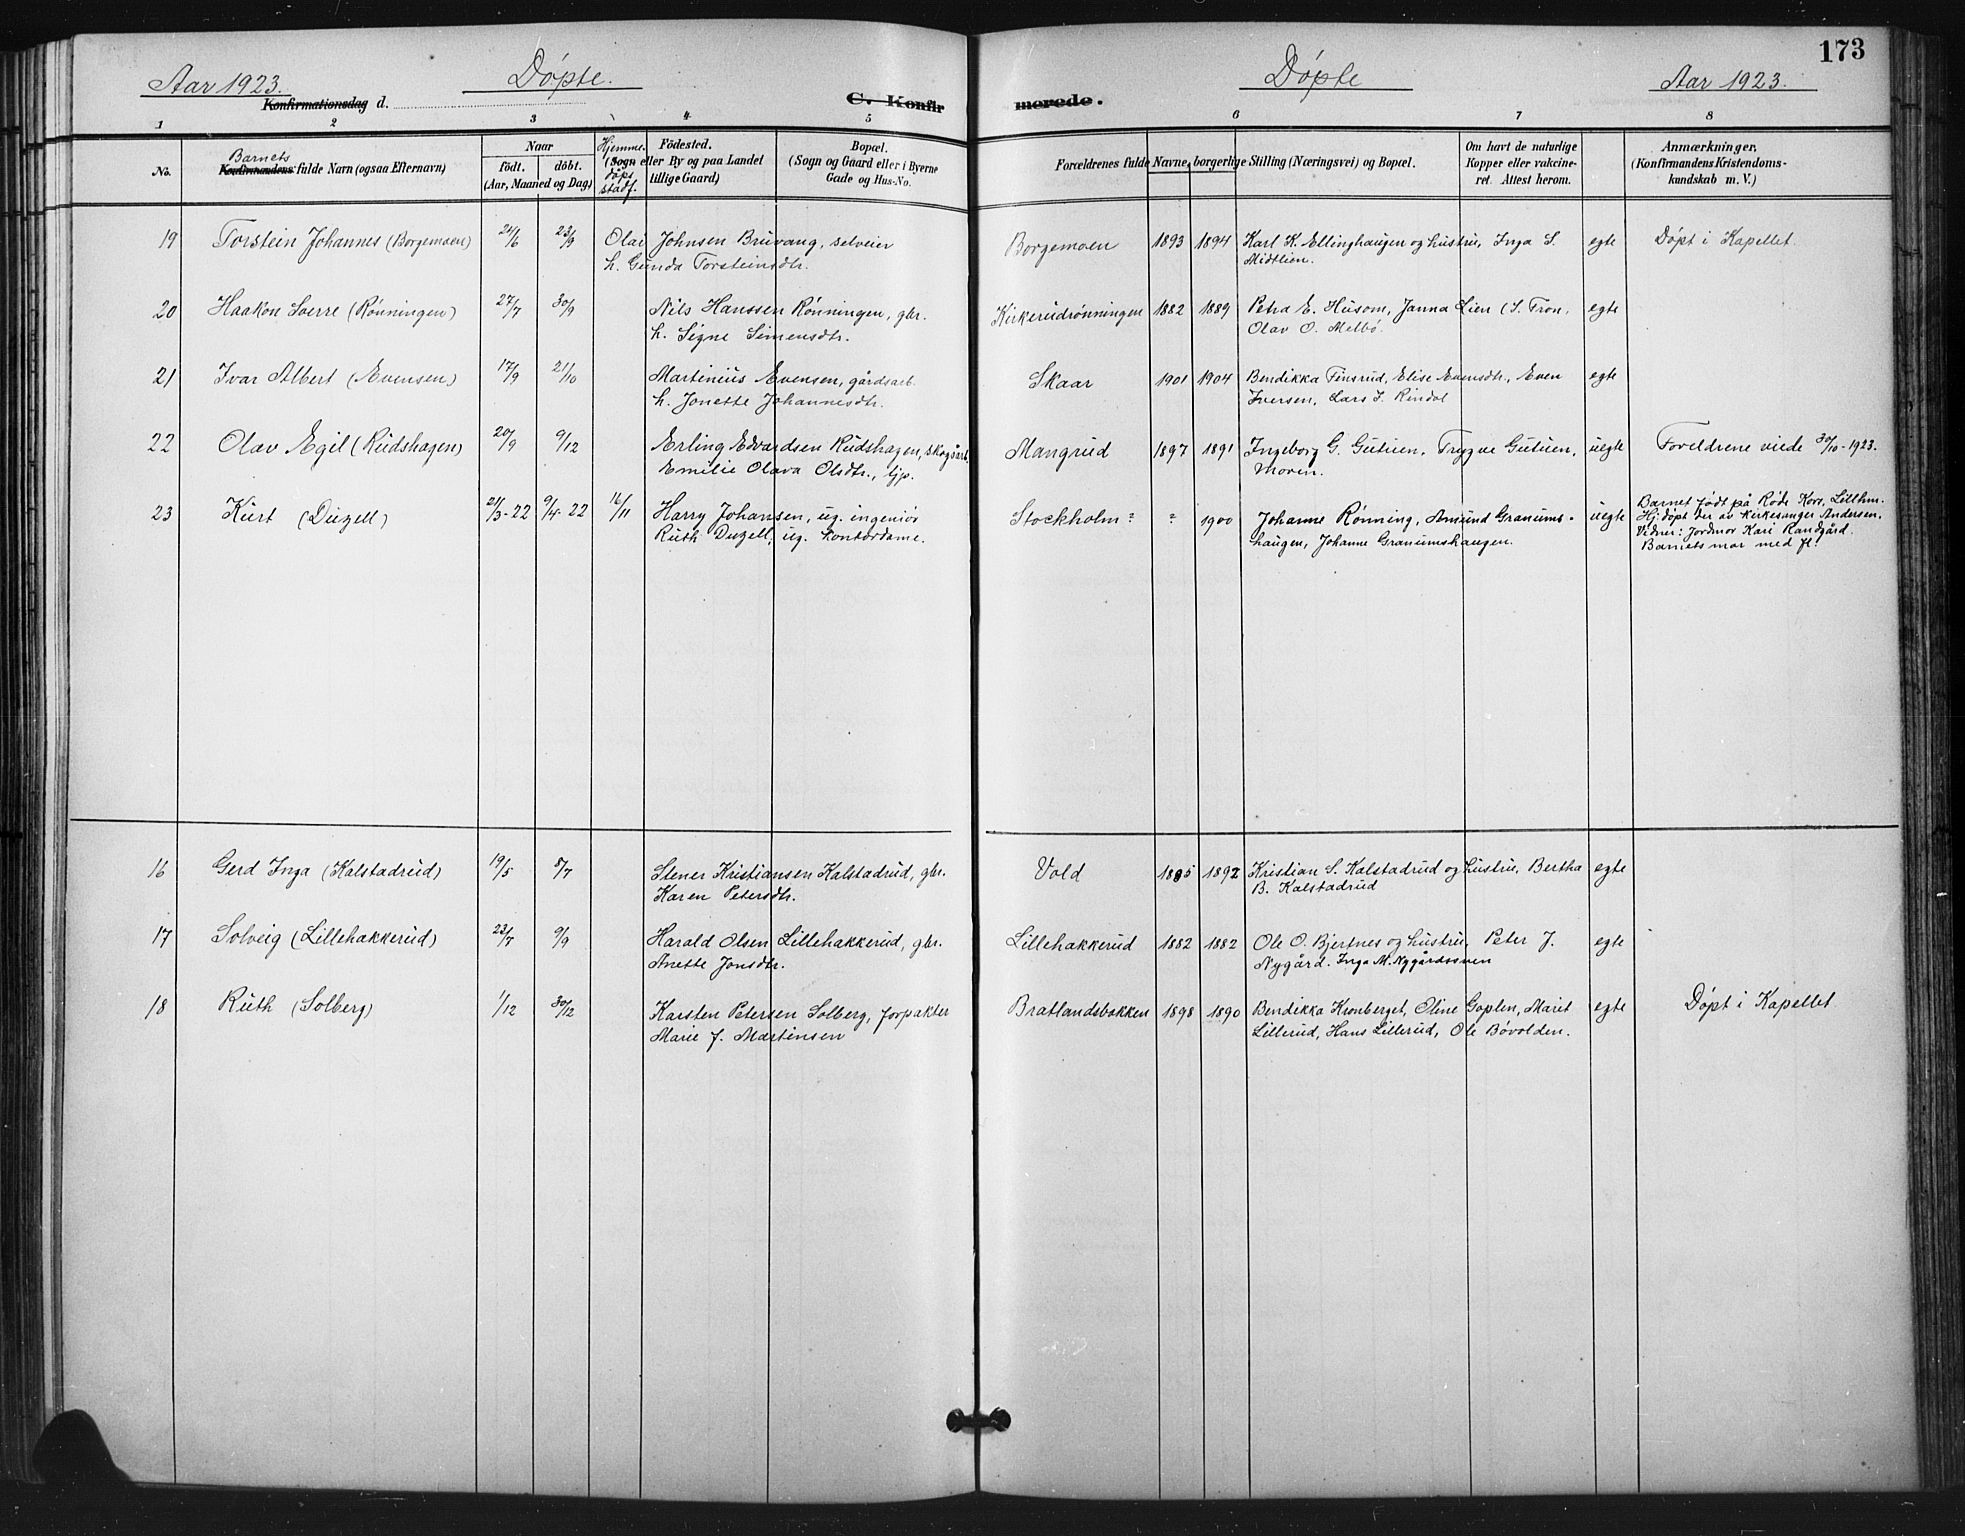 173
Aar 1923. Döpte. Döpte Aar 1923.
Konfirmationsdag d. C. Konfirmerede.
1 2 3 4 5 6 7 8
No. Barnets Konfirmandens fulde Navn (ogsaa Efternavn)
Naar födt. döbt. (Aar, Maaned og Dag)
Hjemmedöpt stadf.
Födested. (Sogn eller By og paa Landet tillige Gaard)
Bopæl. (Sogn og Gaard eller i Byerne Gade og Hus-No.
Forældrenes fulde Navne, borgerlige Stilling (Næringsvei) og Bopæl.
Om havt de naturlige Kopper eller vakcineret. Attest herom.
Anmærkninger. (Konfirmandens Kristendomskundskab m. V.)
19 Torstein Johannes (Borgemoen) 24/6 23/9 Olai Johnsen Bruvang, selveier Borgemoen 1893 1894 Karl K. Ellinghaugen og hustru, Inga S. egte Döpt i Kapellet.
h. Gunda Torsteinsdtr. Midtlien.
20 Haakon Sverre (Rønningen) 27/7 30/9 Nils Hanssen Rønningen, gbr. Kirkerudrønningen 1882 1889 Petra E. Husom, Janna Lien (S. Fron, egte
h. Signe Simensdtr. Olav O. Melbö.
21 Ivar Albert (Evensen) 17/9 21/10 Martinius Evensen, gårdsarb. Skaar 1901 1904 Bendikka Finsrud, Elise Evensdtr., Even egte
h. Jonette Johannesdtr. Iversen, Lars J. Rindal
22 Olav Egil (Rudshagen) 20/9 9/12 Erling Edvardsen Rudshagen, skogsarb. Mangrud 1897 1891 Ingeborg G. Gutuen, Trygve Gutuen, uegte Foreldrene viede 30/10-1923.
Emilie Olava Olsdtr., tjp. Moren.
23 Kurt (Duzell) 21/3-22 9/4-22 16/11 Harry Johansen, ug. ingeniör Stockholm? ? 1900 Johanne Rønning, Amund Granumshaugen, Johanne Granumshaugen. uegte
Ruth Duzell, ug. kontordame.
Barnet födt på Röde Kors, Lillhm.
Hj.döpt der av kirkesanger Andersen.
Vidner: Jordmor Kari Randgård.
Barnets mor med fl.
16 Gerd Inga (Kalstadrud) 19/5 8/7 Stener Kristiansen Kalstadrud, gbr. Vold 1885 1892 Kristian S. Kalstadrud og hustru, Bertha egte
Karen Petersdtr. B. Kalstadrud
17 Solveig (Lillehakkerud) 23/7 9/9 Harald Olsen Lillehakkerud, gbr. Lillehakkerud 1882 1882 Ole O. Bjertnes og hustru, Peter J. egte
Anette Jonsdtr. Nygård. Inga M. Nygårdssven
18 Ruth (Solberg) 1/12 30/12 Karsten Petersen Solberg, forpakter Bratlandsbakken 1898 1890 Bendikka Kronberget, Oline Goplen, Marit egte Döpt i Kapellet.
Marie f. Martinsen Lillerud, Hans Lillerud, Ole Bövolden.